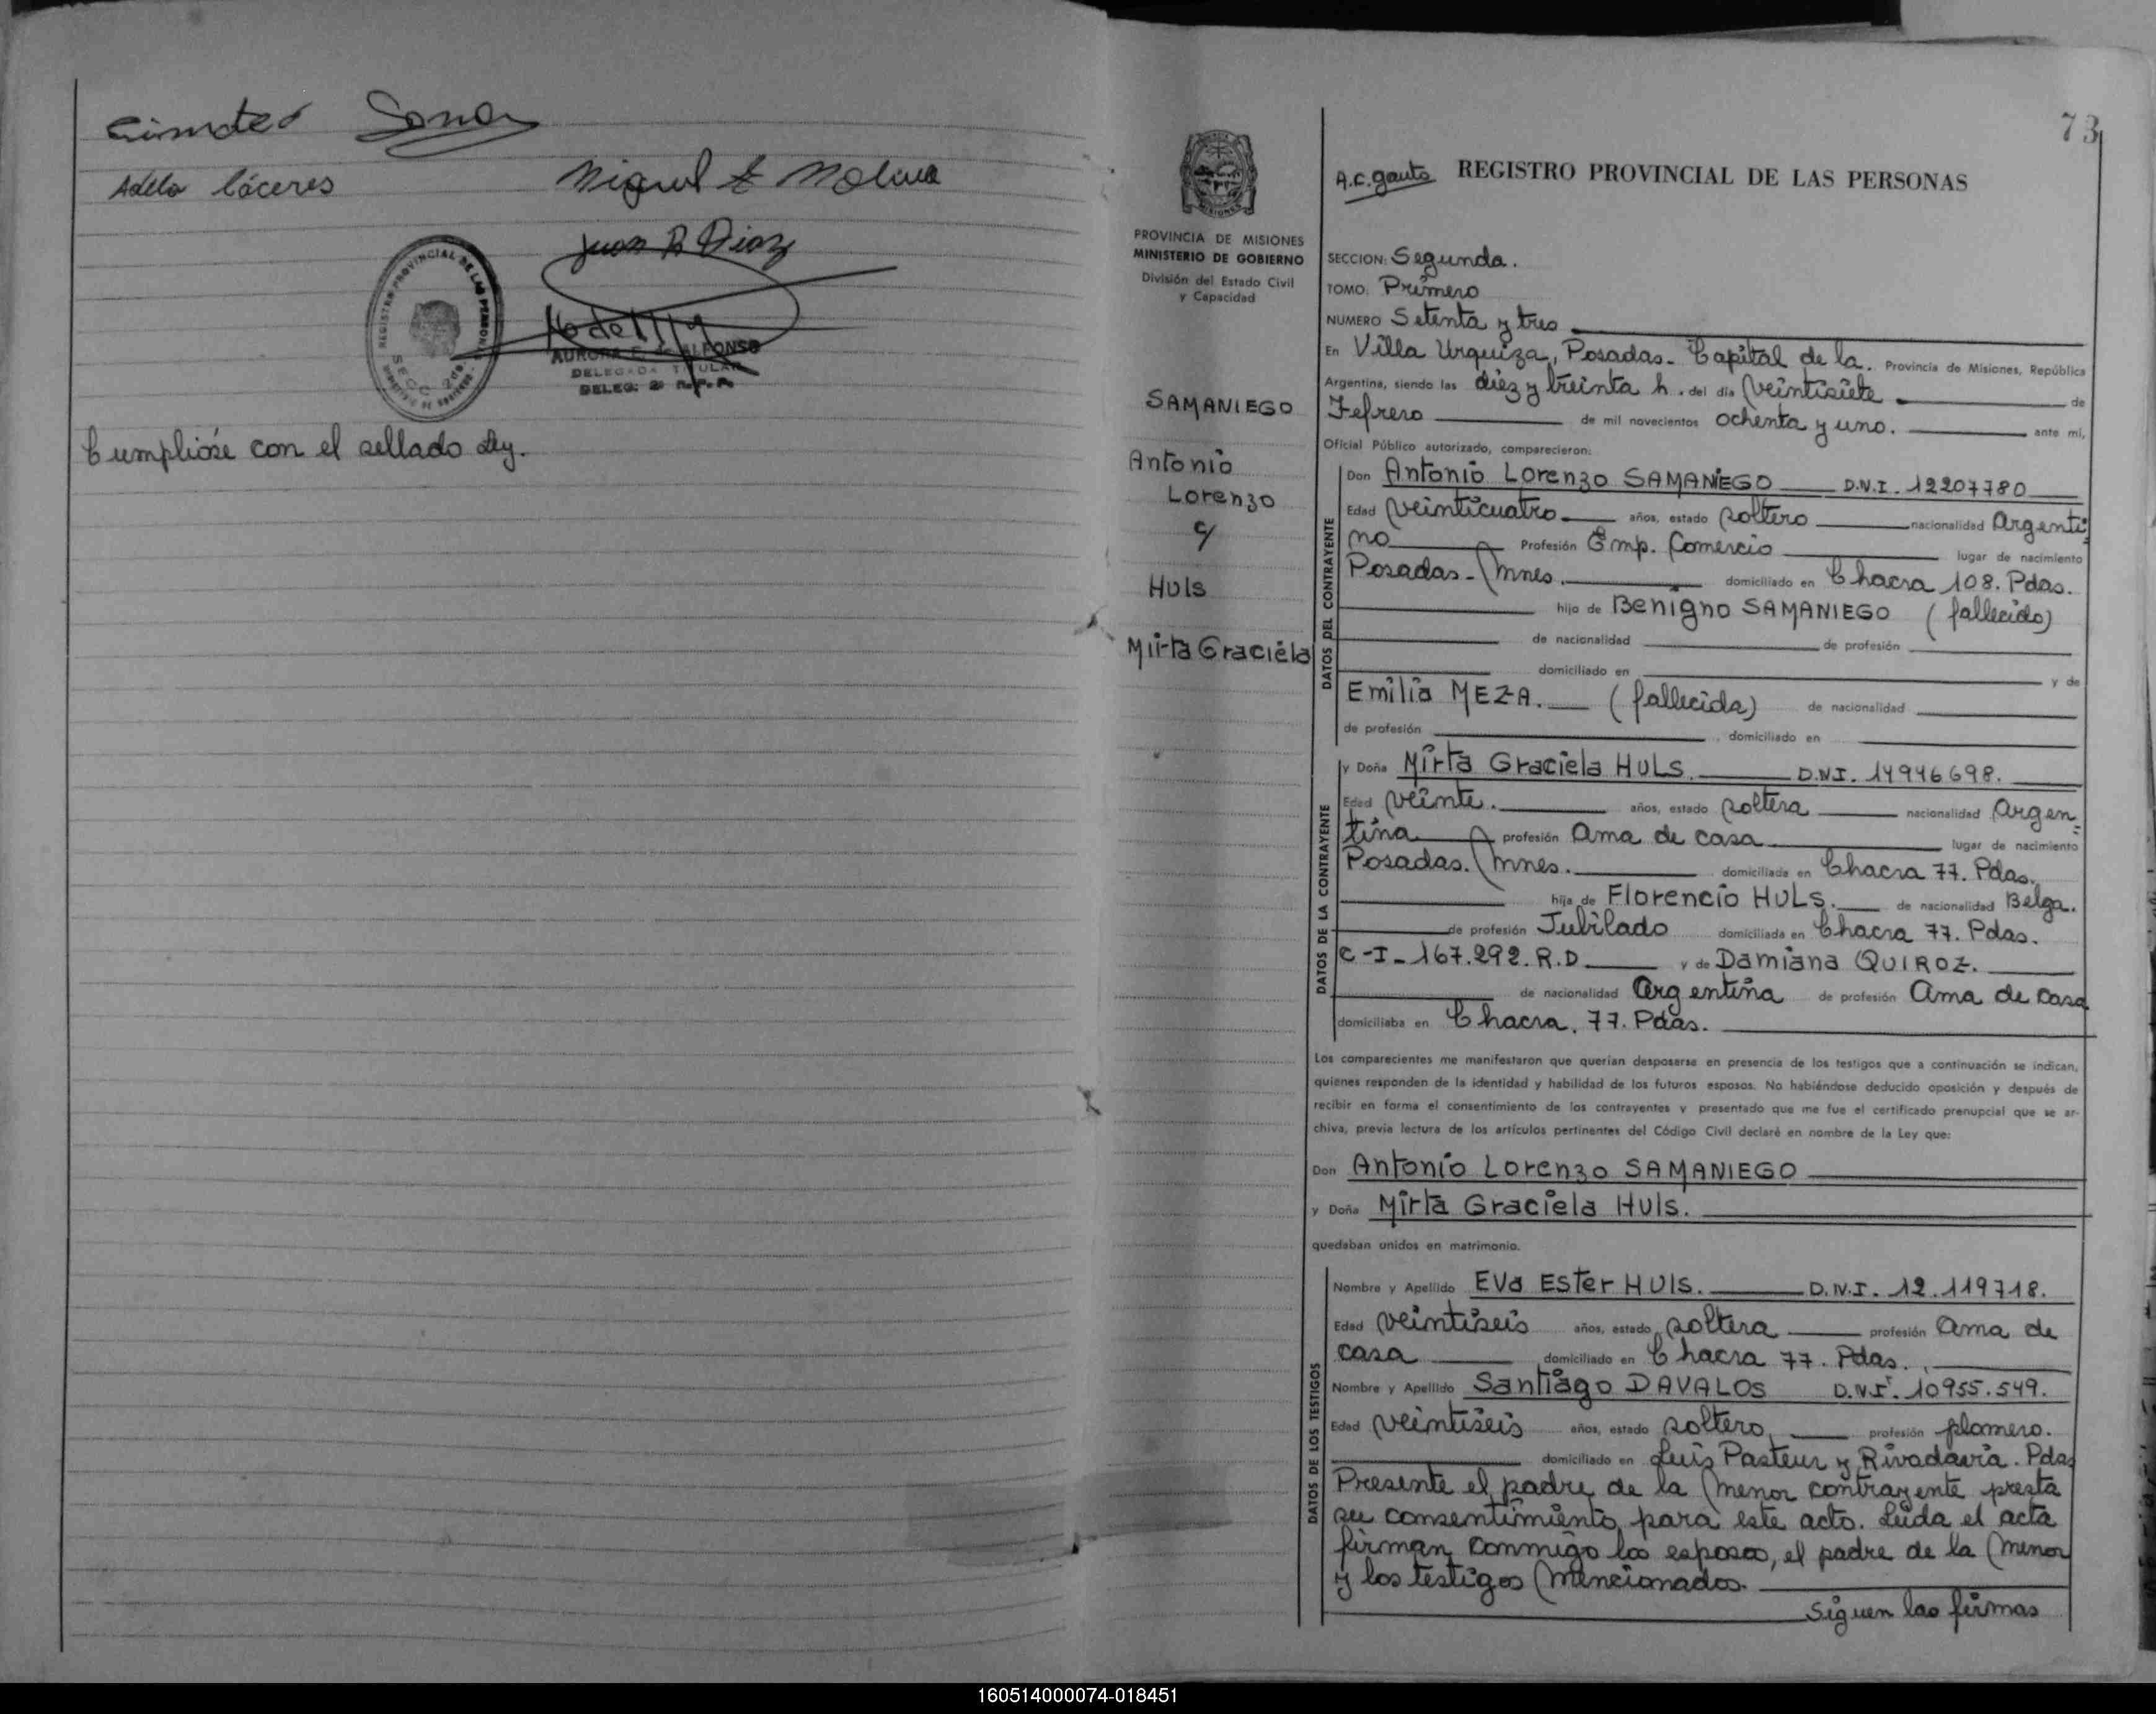 Adela Cáceres
Miguel A Molina
Juan R Diaz
REGISTRO PROVINCIAL DE LAS PERSONAS
SECC. 2da.
AURORA E. de ALFONSO
DELEGADA TITULAR
DELEG. 2ª R.P.P.
Cumplióse con el sellado Ley.
PROVINCIA DE MISIONES
MINISTERIO DE GOBIERNO
División del Estado Civil
y Capacidad
SAMANIEGO
Antonio
Lorenzo
c/
Huls
Mirta Graciela
73
A.C. Gauto REGISTRO PROVINCIAL DE LAS PERSONAS
SECCION: Segunda.
TOMO: Primero
NUMERO Setenta y tres
En Villa Urquiza, Posadas - Capital de la. Provincia de Misiones, República
Argentina, siendo las diez y treinta h. del día veintisiete de
Febrero de mil novecientos ochenta y uno. ante mi,
Oficial Público autorizado, comparecieron:
DATOS DEL CONTRAYENTE
Don Antonio Lorenzo SAMANIEGO D.N.I. 12207780
Edad veinticuatro años, estado soltero nacionalidad Argenti
no Profesión Emp. Comercio lugar de nacimiento
Posadas - Mnes. domiciliado en Chacra 108. Pdas.
hijo de Benigno SAMANIEGO (fallecido)
de nacionalidad de profesión
domiciliado en y de
Emilia MEZA. (fallecida) de nacionalidad
de profesión , domiciliado en
DATOS DE LA CONTRAYENTE
y Doña Mirta Graciela HULS. D.N.I. 14946698.
Edad veinte. años, estado soltera nacionalidad Argen=
tina profesión Ama de casa lugar de nacimiento
Posadas. Mnes. domiciliada en Chacra 77. Pdas.
hija de Florencio HULS. de nacionalidad Belga.
de profesión Jubilado domiciliada en Chacra 77. Pdas.
C-I-167.292.R.D y de Damiana QUIROZ.
de nacionalidad Argentina de profesión Ama de casa
domiciliaba en Chacra. 77. Pdas.
Los comparecientes me manifestaron que querían desposarse en presencia de los testigos que a continuación se indican,
quienes responden de la identidad y habilidad de los futuros esposos. No habiéndose deducido oposición y después de
recibir en forma el consentimiento de los contrayentes y presentado que me fue el certificado prenupcial que se ar-
chiva, previa lectura de los artículos pertinentes del Código Civil declaré en nombre de la Ley que:
Don Antonio Lorenzo SAMANIEGO
y Doña Mirta Graciela Huls.
quedaban unidos en matrimonio.
DATOS DE LOS TESTIGOS
Nombre y Apellido Eva Ester Huls. D.N.I. 12.119718.
Edad veintiseis años, estado soltera profesión Ama de
casa domiciliado en Chacra 77. Pdas.
Nombre y Apellido Santiago DAVALOS D.N.I. 10955.549.
Edad veintiseis años, estado soltero, profesión plomero.
domiciliado en Luis Pasteur y Rivadavia. Pdas
Presente el padre de la menor contrayente presta
su consentimiento para este acto. Leida el acta
firman conmigo los esposos, el padre de la menor
y los testigos mencionados.
Siguen las firmas
160514000074-018451